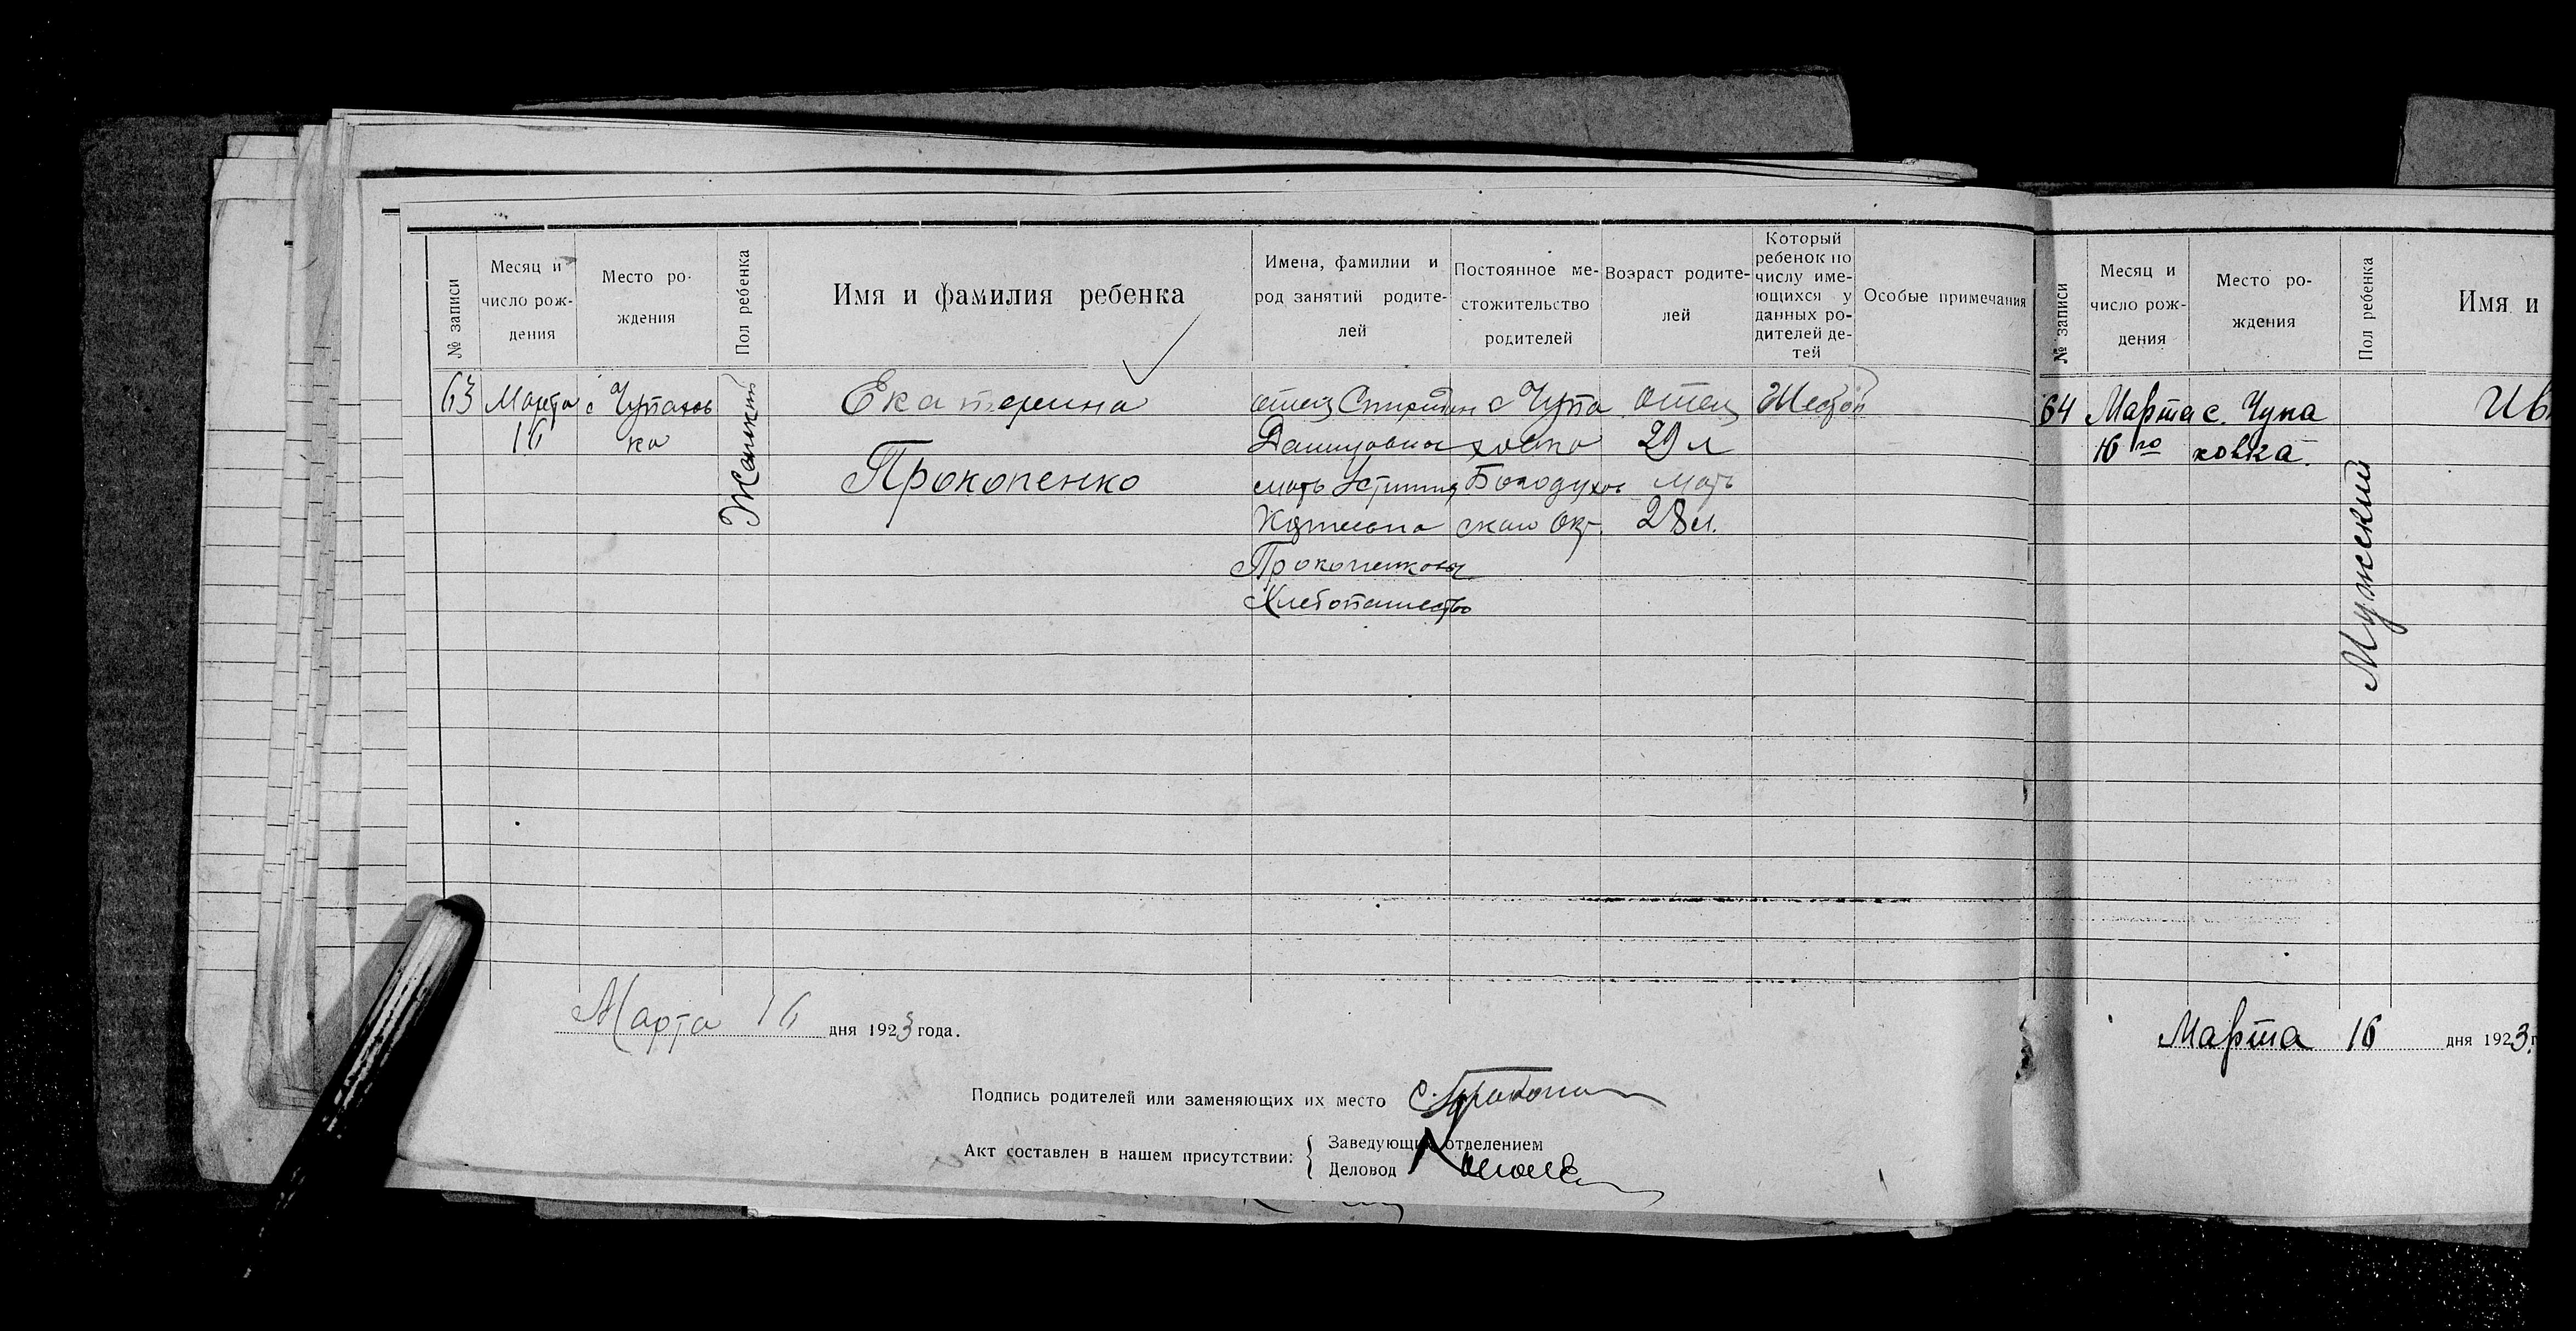 № записи
Месяц и
число рож-
дения
Место ро-
ждения
Пол ребенка
Имя и фамилия ребенка
Имена, фамилии и
род занятий родите-
лей
Постоянное ме-
стожительство
родителей
Возраст родите-
лей
Который
ребенок по
числу име-
ющихся у
данных ро-
дителей де-
тей
Особые примечания
63
Марта
16
с Чупахов
ка
Женский
Екатерина
Прокопенко
отец Спиридон
мать Устиния
Прокопенковы
Хлебопашество
с Чупа
ховка
Богодухов
ский окр.
отец
29 л
мать
28 л.
Марта 16 дня 1923 года.
Подпись родителей или заменяющих их место
Акт составлен в нашем присутствии:
Заведующий отделением
Деловод
№ записи
Месяц и
число рож-
дения
Место ро-
ждения
Пол ребенка
Имя и
64
Марта
16го
с. Чупа
ховка.
Мужский
Ив
Марта 16 дня 1923 г